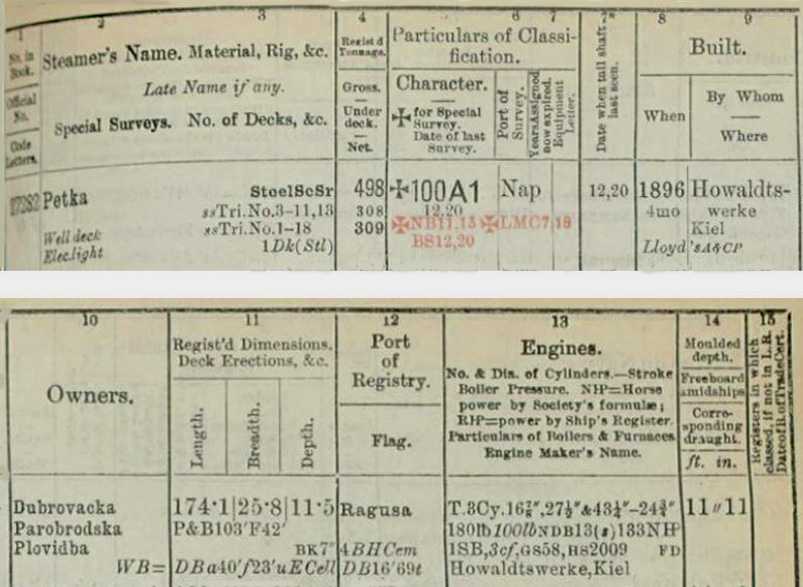 1 2 3 4 5 6 7 8 9
No. in Book. Steamer's Name. Material, Rig, &c. Regist'd Tonnage. Particulars of Classification. Date when tail shaft last seen. Built.
Late Name if any. Gross. Character. Port of Survey. Years Assigned now expired. Equipment Letter. By Whom
Official No. Under deck. ✠ for Special Survey. When
Special Surveys. No. of Decks, &c. Date of last Survey. Where
Code Letters. Net.
Petka SteelScSr 498 ✠100A1 Nap 12,20 1896 Howaldts-
ssTri.No.3-11,13 308 12,20 4mo werke
Well deck ssTri.No.1-18 309 ✠NB11,13 ✠LMC7,18 Kiel
Elec.light 1Dk(Stl) BS12,20 Lloyd'sA&CP
10 11 12 13 14 15
Owners. Regist'd Dimensions. Port Engines. Moulded depth. Registers in which classed, if not in L.R.
Deck Erections, &c. of No. & Dia. of Cylinders.—Stroke Date of B. of Trade Cert.
Registry. Boiler Pressure. NHP=Horse Freeboard amidships
Length. Breadth. Depth. power by Society's formulæ;
RHP=power by Ship's Register. Corresponding draught.
Flag. Particulars of Boilers & Furnaces
Engine Maker's Name. ft. in.
Dubrovacka 174·1 25·8 11·5 Ragusa T.3Cy.16⅞",27½"&43¼"-24¾" 11"11
Parobrodska P&B103'F42' 180lb 100lb NDB13(s)133NHP
Plovidba BK7" 4BHCem 1SB,3cf,GS58,HS2009 FD
WB= DBa40'f23'uECell DB16'69t Howaldtswerke,Kiel